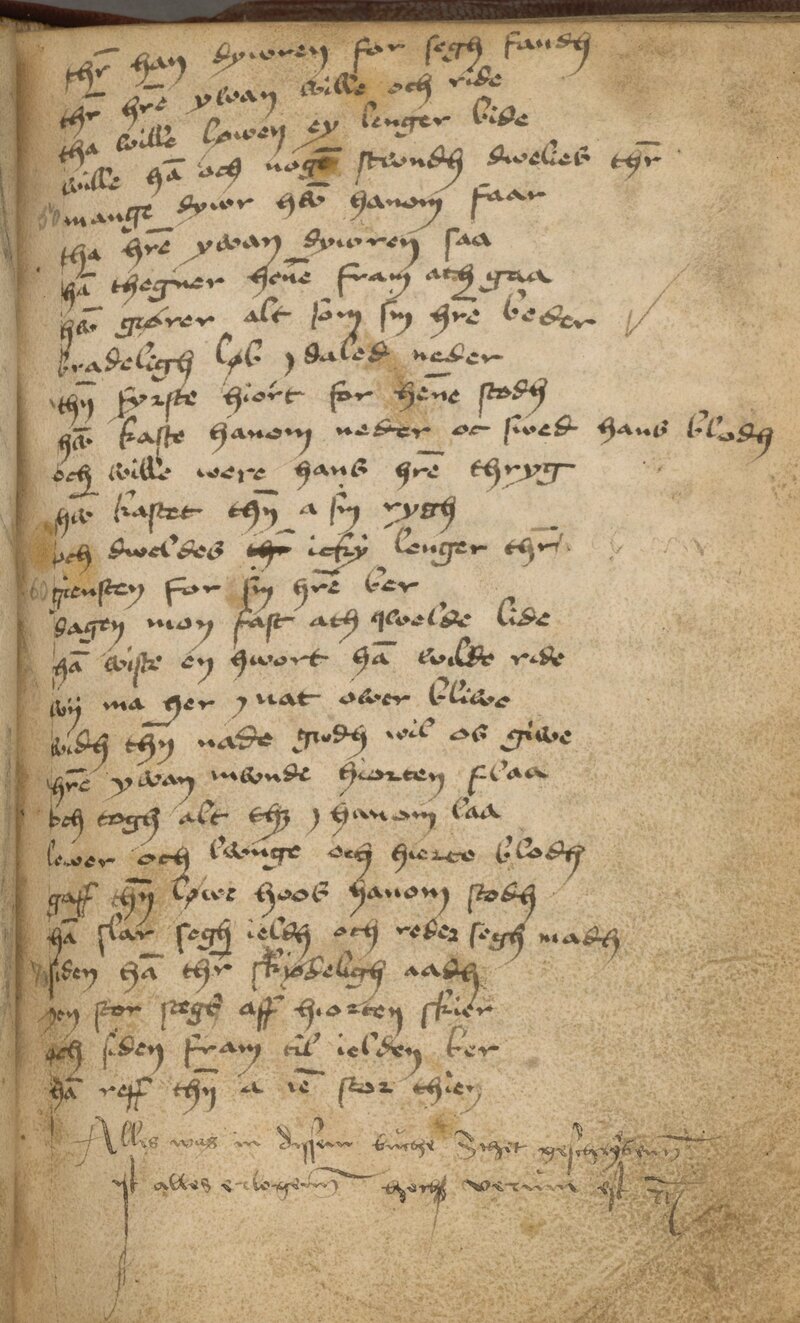 thr̄ han dywren for segh fandh
thr̄ hrē ywan wille och ride
tha wille løwen ey lenger bide
wille hā och nogē stwndh dweles thr̄
50 mange dywr hw̄ hanom faar
tha hrē ywan dyworen saa
hā thegner henē fram ath gaa
hw̄ gører alt som sin hrē beder
bradeligh løb j daled neder
thn̄ fyrste hiort for henē stodh
hw̄ kaste hanom neder oc swed hans blodh
och wille were hans hrē thryg
hw̄ kastet thn̄ a sin rygh
och dweldes icky lenger thr̄
60 giensten for sin hrē ber
dagen mon fast ath qwelde lide
hā wiste en hwort hā wilde ride
wij ma her j nat ower bliwe
widh thn̄ nade gwdh wil os giwe
hrē ywan mwnde hiorten flaa
och togh alt thz j hanom laa
lewer och lwnge och hierte blodh
gaff thn̄ løwe hoos hanom stodh
hā slar segh ieldh och reder segh madh
siden hā thr̄ skyndeligh aadh
en stor stegh aff hiorten skier
och siden fram til ielden ber
hā reff thn̄ a iē stor thien
Alles was in dissem buche sthet geschrybenn
ist alles erlogenn verum est